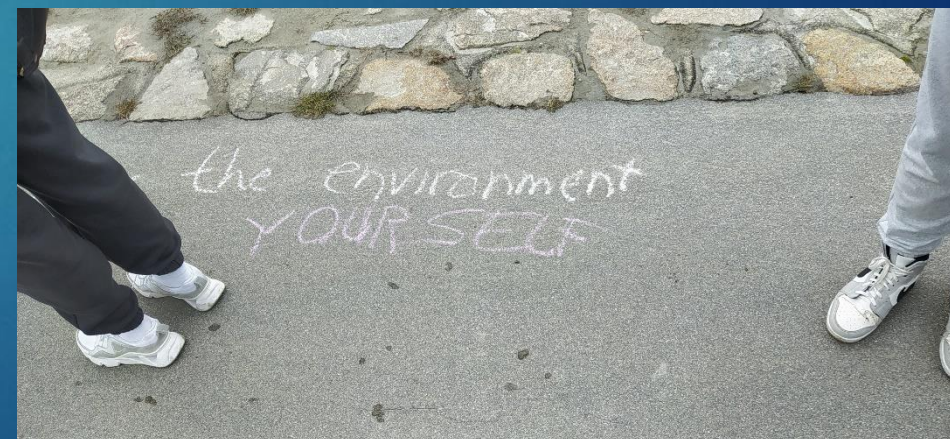 the environment
YOURSELF